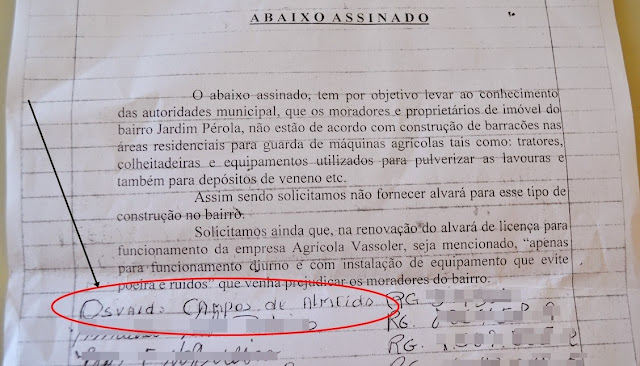 ABAIXO ASSINADO
O abaixo assinado, tem por objetivo levar ao conhecimento
das autoridades municipal, que os moradores e proprietários de imóvel do
bairro Jardim Pérola, não estão de acordo com construção de barracões nas
áreas residenciais para guarda de máquinas agrícolas tais como: tratores,
colheitadeiras e equipamentos utilizados para pulverizar as lavouras e
também para depósitos de veneno etc.
Assim sendo solicitamos não fornecer alvará para esse tipo de
construção no bairro.
Solicitamos ainda que, na renovação do alvará de licença para
funcionamento da empresa Agrícola Vassoler, seja mencionado, "apenas
para funcionamento diurno e com instalação de equipamento que evite
poeira e ruídos" que venha prejudicar os moradores do bairro.
Osvaldo Campos de Almeida RG
RG.
RG.